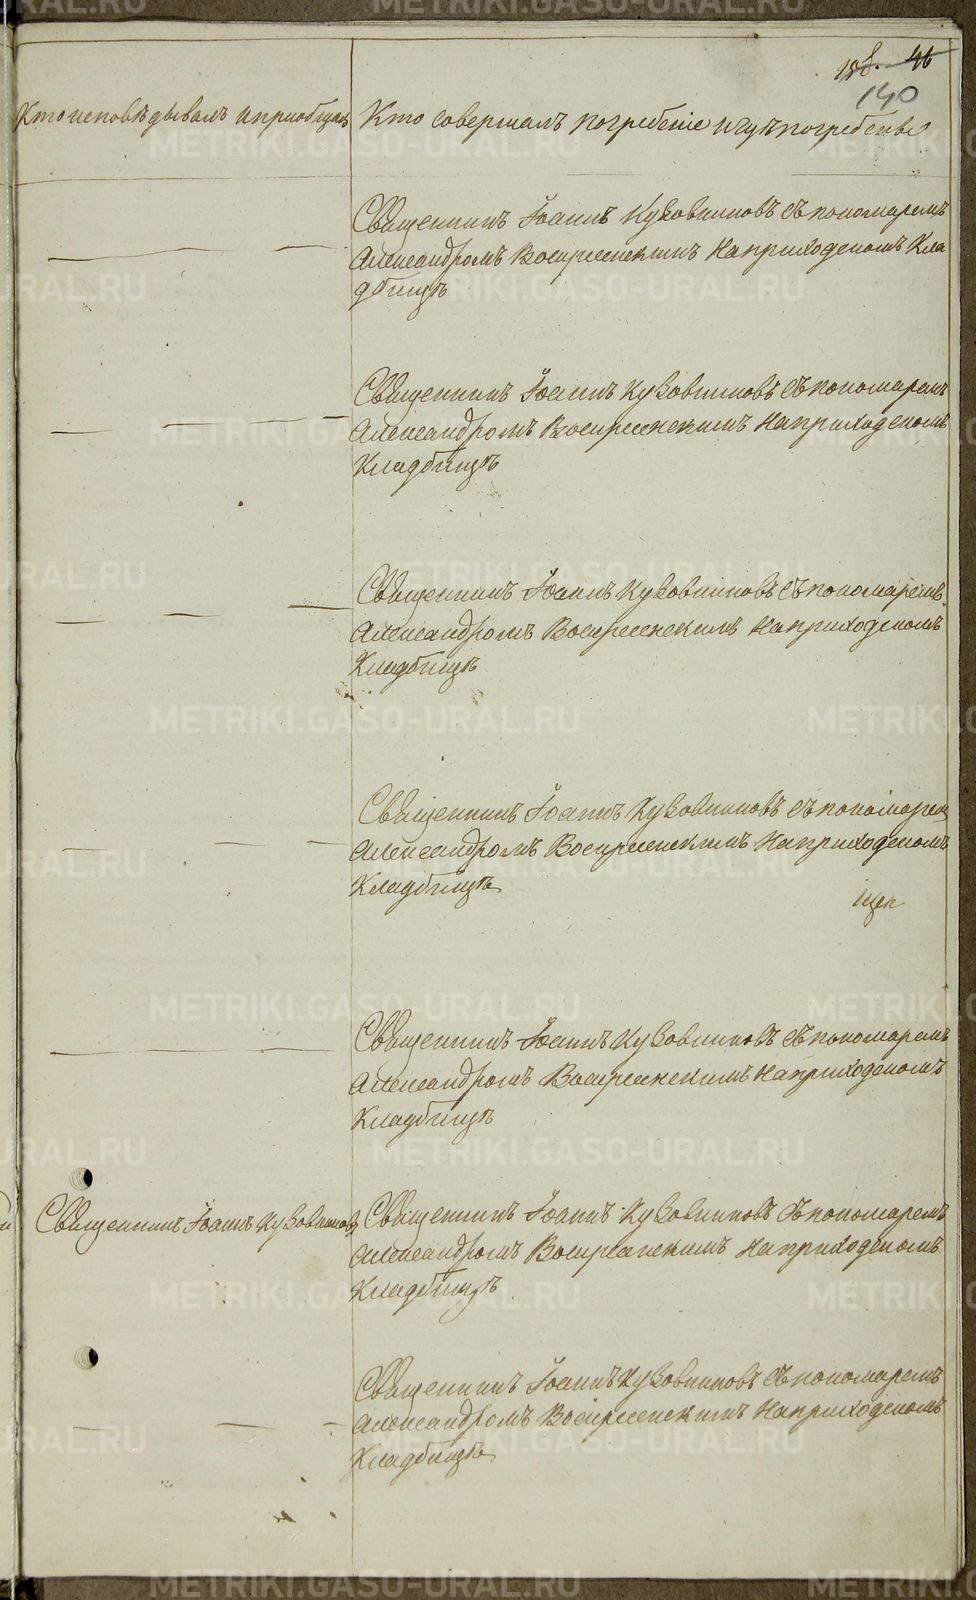 158. 46
140
Кто исповѣдывалъ и приобщалъ
Кто совершалъ погребеніе и гдѣ погребены
Священникъ Іоаннъ Кузовниковъ съ пономаремъ
Александромъ Воскресенскимъ на приходскомъ Кла
дбищѣ
Священникъ Іоаннъ Кузовниковъ съ пономаремъ
Александромъ Воскресенскимъ на приходскомъ
Кладбищѣ
Священникъ Іоаннъ Кузовниковъ съ пономаремъ
Александромъ Воскресенскимъ на приходскомъ
Кладбищѣ
Священникъ Іоаннъ Кузовниковъ съ пономарем
Александромъ Воскресенскимъ на приходскомъ
Кладбищѣ
Священникъ Іоаннъ Кузовниковъ съ пономаремъ
Александромъ Воскресенскимъ на приходскомъ
Кладбищѣ
Священникъ Іоаннъ Кузовниковъ
Священникъ Іоаннъ Кузовниковъ съ пономаремъ
Александромъ Воскресенскимъ на приходскомъ
Кладбищѣ
Священникъ Іоаннъ Кузовниковъ съ пономаремъ
Александромъ Воскресенскимъ на приходскомъ
Кладбищѣ
METRIKI.GASO-URAL.RU